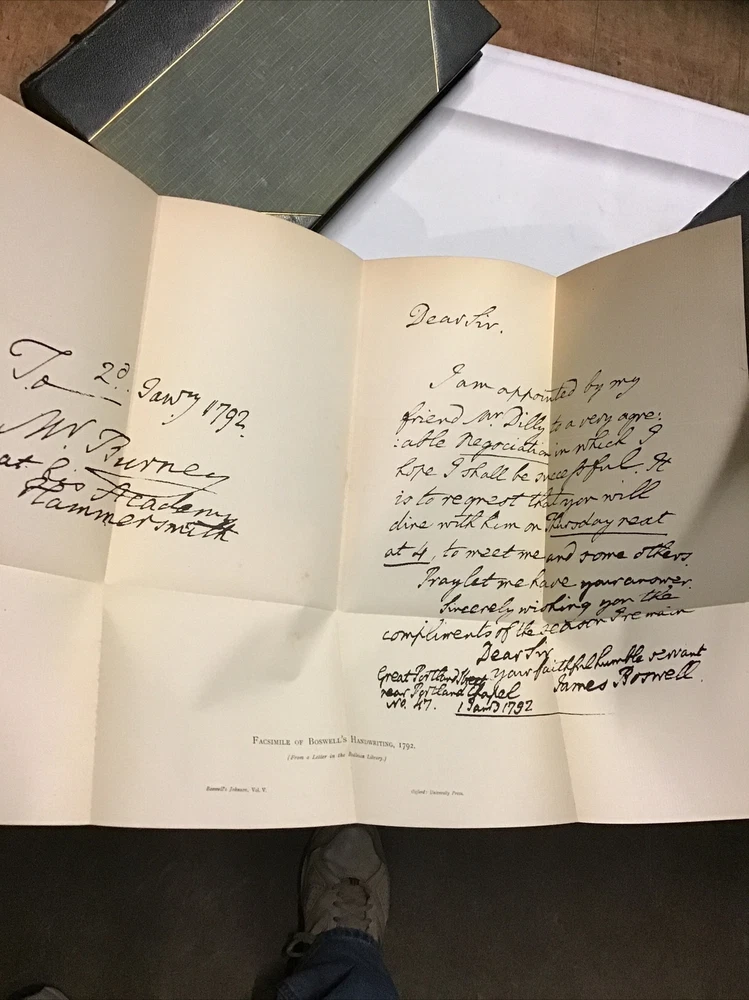 To
2d Janry 1792.
Mr. Burney
at his Academy
Hammersmith
Dear Sir.
I am appointed by my
friend Mr. Dilly to a very agre:
:able Negociation in which I
hope I shall be successful. It
is to request that you will
dine with him on Thursday next
at 4, to meet me and some others.
Pray let me have your answer.
Sincerely wishing you the
compliments of the season I remain
Dear Sir
your faithful humble servant
James Boswell.
Great Portland Street
near Portland Chapel
No. 47.
1 Janry 1792
FACSIMILE OF BOSWELL'S HANDWRITING, 1792.
(From a Letter in the Bodleian Library.)
Boswell's Johnson, Vol. V.
Oxford: University Press.